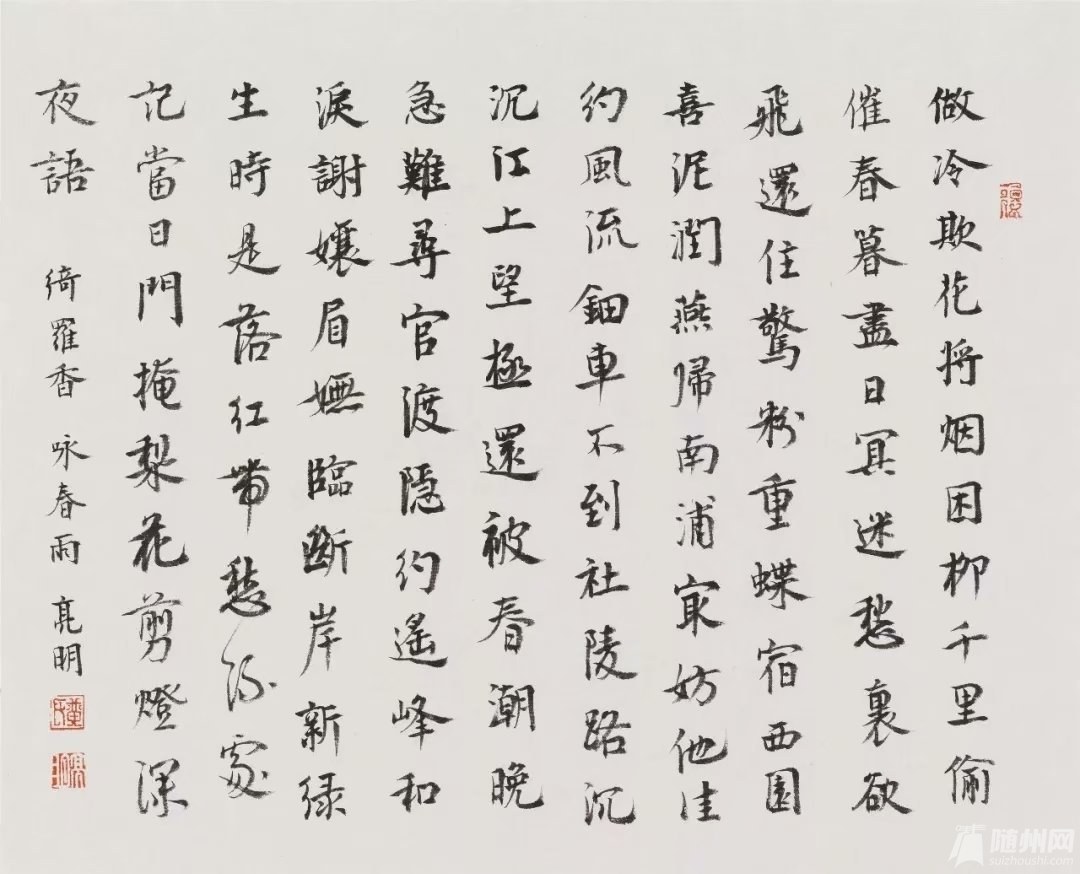 做冷欺花将烟困柳千里偷
催春暮盡日冥迷愁裏欲
飛還住驚粉重蝶宿西園
喜泥潤燕歸南浦冣妨他佳
約風流鈿車不到杜陵路沉
沉江上望極還被春潮晚
急難尋官渡隠約遙峰和
淚謝孃眉嫵臨斷岸新緑
生時是落紅帶愁流處
記當日門掩梨花剪燈深
夜語 綺羅香 咏春雨 亮明
随州网
suizhoushi.com